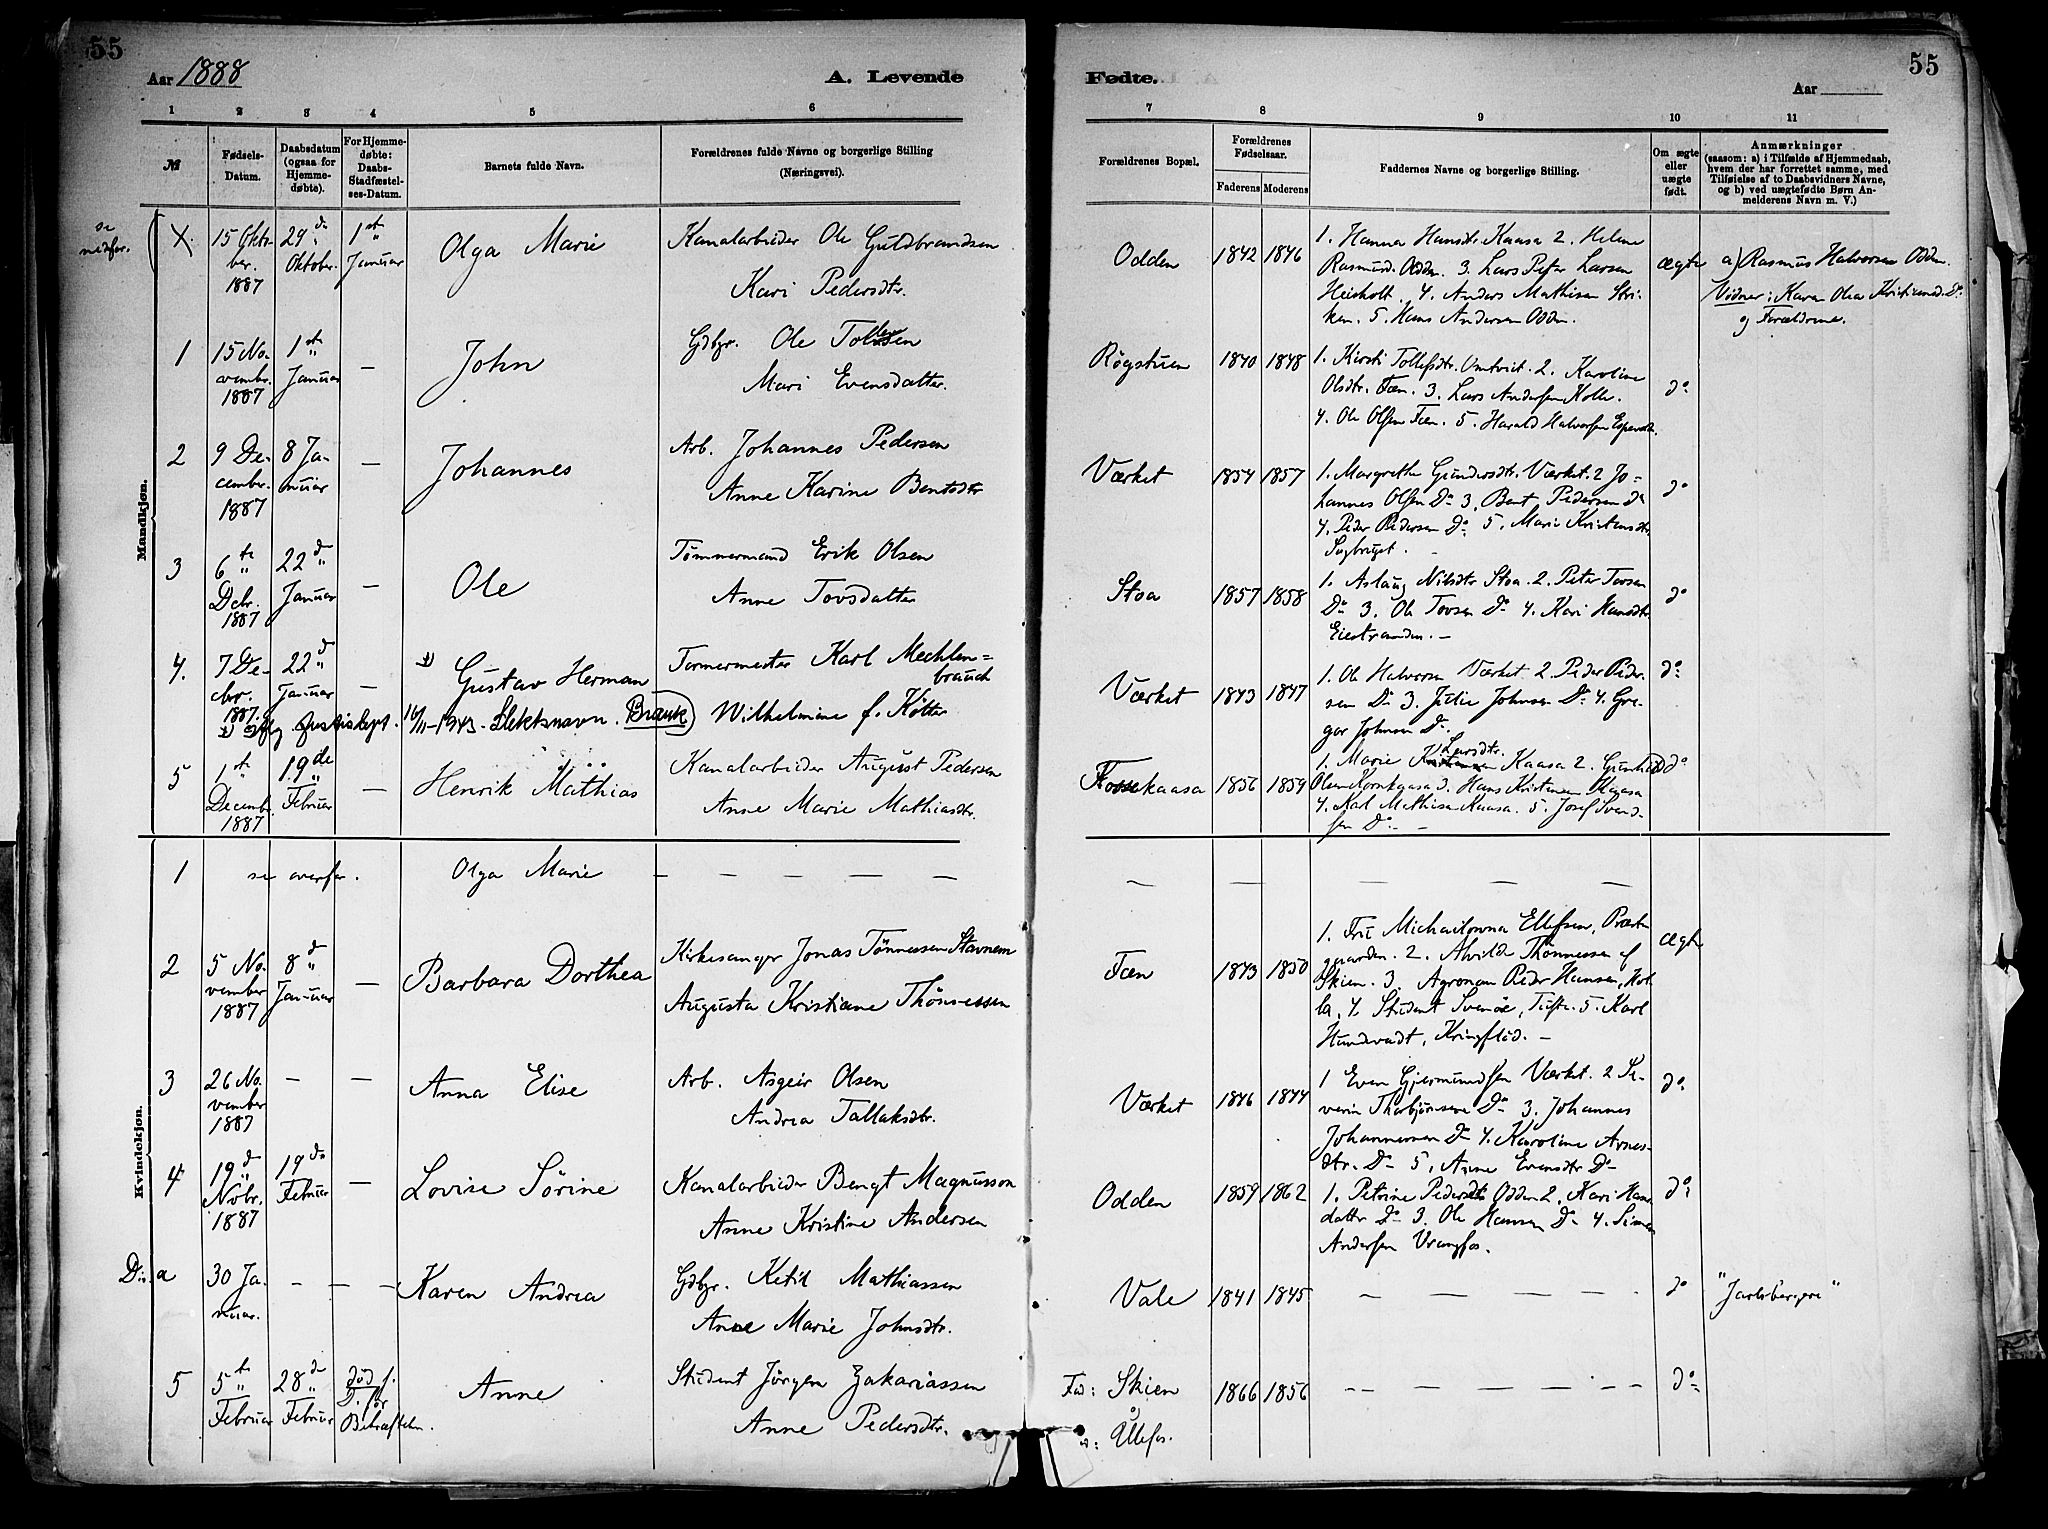 55
Aar 1888
A. Levende
Fødte.
Aar
55
1 2 3 4 5 6 7 8 9 10 11
№
Fødsels-Datum.
Daabsdatum (ogsaa for Hjemmedøbte).
For Hjemmedøbte: Daabs-Stadfæstelses-Datum.
Barnets fulde Navn.
Forældrenes fulde Navne og borgerlige Stilling (Næringsvei).
Forældrenes Bopæl.
Forældrenes Fødselsaar.
Faderens Moderens
Faddernes Navne og borgerlige Stilling.
Om ægte eller uægte født.
Anmærkninger
(saasom: a) i Tilfælde af Hjemmedaab, hvem der har forrettet samme, med Tilføielse af to Daabsvidners Navne, og b) ved uægtefødte Børn Anmelderens Navn m. V.)
Mandkjøn.
se nedfor.
X. 15 Oktober. 1887 29de Oktober. 1ste Januar
Olga Marie
Kanalarbeider Ole Guldbrandsen
Kari Pedersdtr.
Odden 1842 1846
1. Hanna Hansdtr. Kaasa 2. Helene
Rasmusd. Odden. 3. Lars Peter Larsen
Heisholt. 4. Anders Mathisen
5. Hans Andersen Odden.
ægte
a) Rasmus Halvorsen Odden.
Vidner: Karen Olea Kristiansd. Do:
og Forældrene.
1 15 November. 1887 1ste Januar —
John
Gdbgr. Ole Tollefsen
Mari Evensdatter.
Røgstuen 1840 1848
1. Kirsti Tollefsdtr. Omtvedt. 2. Karoline
Olsdtr. Fæn. 3. Lars Andersen Kolle.
4. Ole Olsen Fæn. 5. Harald Halvorsen
do
2 9 December. 1887 8 Januar —
Johannes
Arb. Johannes Pedersen
Anne Karine Bentsdtr
Værket 1854 1857
1. Margrethe Gundersdtr. Værket. 2 Jo-
hannes Olsen Do 3. Bent Pedersen do
4. Peder Pedersen Do. 5. Marie Kristensdtr.
Sagbruget. —
do
3 6te Decbr. 1887 22de Januar —
Ole
Tømmermand Erik Olsen
Anne Tovsdatter
Stoa 1857 1858
1. Aslaug Nilsdtr Stoa. 2. Peter Tovsen
Do 3. Ole Tovsen Do 4. Kari Hansdtr.
Eiestranden. —
do
4. 7 Decbr. 1887. 22de Januar —
1) Gustav Herman
Formermester Karl Mechlen=
brauck
Wilhelmine f. Køtter
1) iflg. Justisdept. 16/11-1943. Slektsnavn. Brauck
Værket 1843 1847
1. Ole Halvorsen Værket 2. Peder Peder-
sen Do 3. Julie Johnsen Do 4. Gre-
gar Johnsen Do.
do
5 1ste Decemb. 1887 19de Februar —
Henrik Mathias
Kanalarbeider August Pedersen
Anne Marie Mathiasdtr.
Fossekaasa 1856 1859
1. Marie Larsdtr. Kaasa 2. Gunhild
Olsen Kornkaasa 3. Hans Kristensen Kaasa
4. Karl Mathisen Kaasa. 5. Josef Svend-
sen Do. —
do
Kvindekjøn.
1 se ovenfor. Olga Marie — — — — —
— — — — —
2 5 November 1887 8de Januar —
Barbara Dorthea
Kirkesanger Jonas Tønnessen Stavnem
Augusta Kristiane Thönnessen
Fæn 1843 1850
1. Fru Michaelowna Ellefsen, Præste-
gaarden. 2. Alvilde Thönnessen af
Skien. 3. Agronom Peder Hansen, Hol-
la, 4. Student Svenöe, Tufte. 5. Karl
Hundevadt, —
ægte
3 26 November 1887 — —
Anna Elise
Arb. Asgeir Olsen
Andrea Tallaksdtr.
Værket 1846 1844
1 Even Gjermundsen Værket. 2 Se-
verin Thorbjörnsen Do 3. Johannes
Johannesen Do 4. Karoline Arnes-
dtr. Do 5. Anne Evensdtr Do
do
4 19de Novbr. 1887 19de Februar —
Lovise Sörine
Kanalarbeider Bengt Magnusson
Anne Kristine Andersen
Odden 1859 1862
1. Petrine Pedersdtr Odden 2. Kari Hans-
datter Do 3. Ole Hansen Do 4. Simen
Andersen Vrangfos.
do
Dis. a 30 Januar. — — —
Karen Andrea
Gdbgr. Ketil Mathiassen
Anne Marie Johnsdtr.
Vale 1841 1845 — — — — — do
"Jarlsbergeri"
5 5te Februar 28de Februar död f. D. før Bekræftelsen.
Anne
Student Jörgen Zakariassen
Anne Pedersdtr.
Fad: Skien
: Ullefos.
1866 1856 — — — — — do